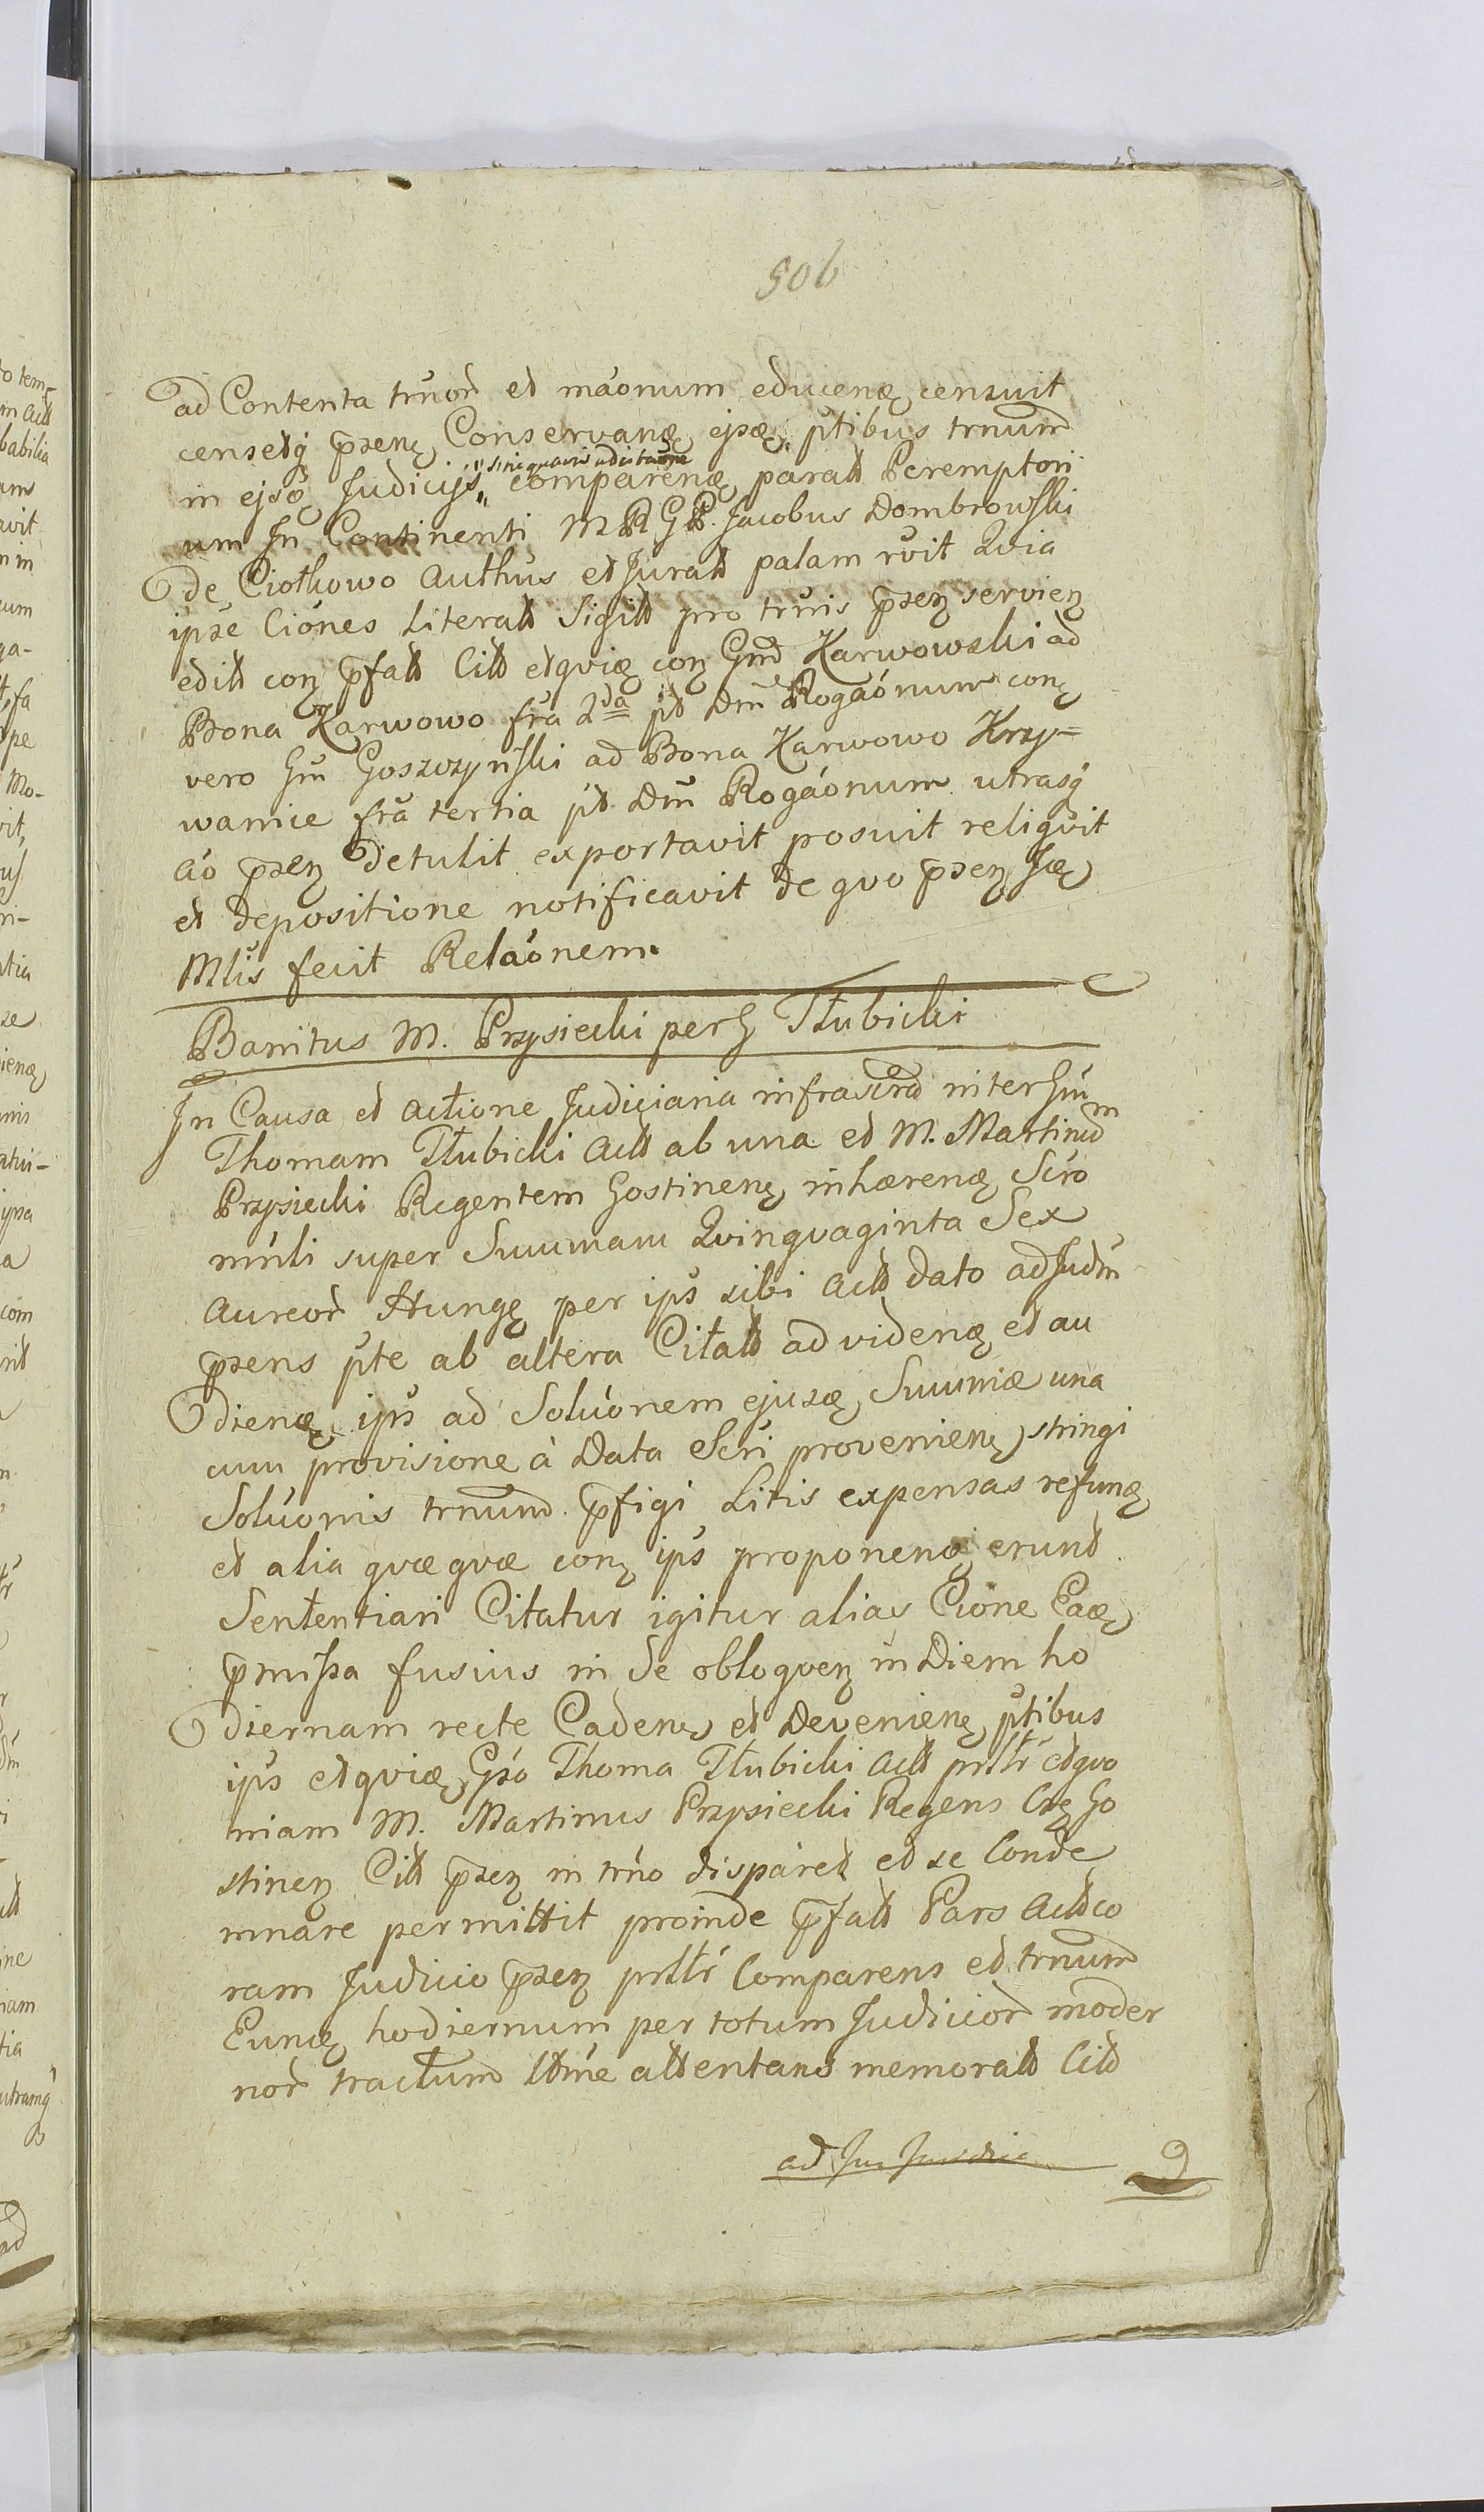 506
ad Contenta trnor et maonum educenḍ censuit
censetq̃ p̃senȩ Conservanḍ ejsḍ ptibus trnum
in ejsḍ Judicijs „ sine quavis adcitaõne „ comparenḍ parat Peremptori
um In Continenti M R G P. Jacobus Dombrowski
de Ciothowo Authus et Jurat palam rvit Qvia
ipse Ciones Literatt Sigilt pro trnis p̃senȝ servienȝ
edit conȝ p̃fatt Citt etqviḍ conȝ Gnd Karwowski ad
Bona Karwowo fra 2da pt Dm Rogaonum conȝ
vero Gm Goszczynski ad Bona Karwowo Krzy=
wanice fra tertia pt. Dm Rogaonum utrasq̃
ao p̃senȝ detulit exportavit posuit reliqvit
et depositione notificavit de qvo p̃senȝ Jḍ
Mlis fecit Relaonem.
Banitus M. Przysiecki per G Tłubicki
In Causa et Actione Judiciaria infrascrd inter Gm
Thomam Tłubicki Actt ab una et M. Martinum
Przysiecki Regentem Gostinenȩ inhærenḍ Scro
mnli super Summam Qvinqvaginta Sex
Aureor Hungȩ per ips sibi Actt dato ad Judm
p̃sens pte ab altera Citatt ad videnḍ et au
dienḍ ips ad Soluonem ejusḍ Summæ una
cum provisione à Data Scri provenienȩ stringi
Soluonis trnum p̃figi Litis expensas refunḍ
et alia qvæqvæ conȝ ips proponenḍ erunt
Sententiari Citatur igitur alias Cione Eaḍ
p̃missa fusius in Se obloqvenȝ in Diem ho
diernam recte Cadenȩ et Devenienȩ ptibus
ips etqviḍ Gso Thoma Tłubicki Actt prttr etqvo
niam M. Martinus Przysiecki Regens Csȩ Go
stinenȝ Citt p̃senȝ in trno disparet et se Conde
mnare permittit proinde p̃fatt Pars Actt co
ram Judicio p̃senȝ prttr Comparens et trnum
Eunḍ hodiernum per totum Judicior moder
nor tractum ltme attentans memoratt Citt
ad Jus